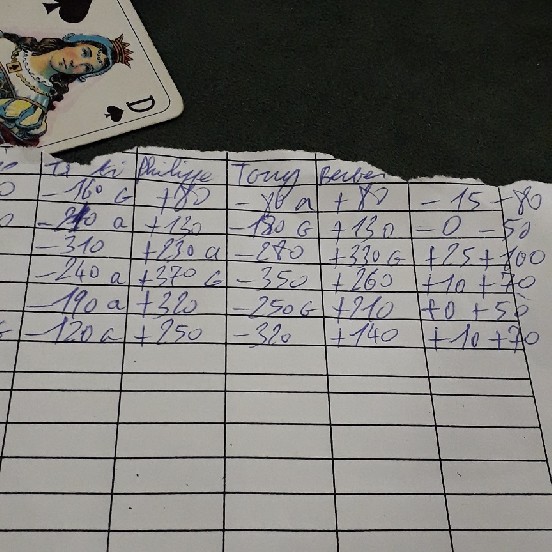 D
Philippe Tony
0 -160 G +80 -80 a +80 -15 +80
0 a +130 -180 G +130 -0 -50
-310 +230 a -280 +330 G +25 +100
-240 a +370 G -350 +260 +10 +70
-190 a +320 -250 G +210 +0 +50
G -120 a +250 -320 +140 +10 +70